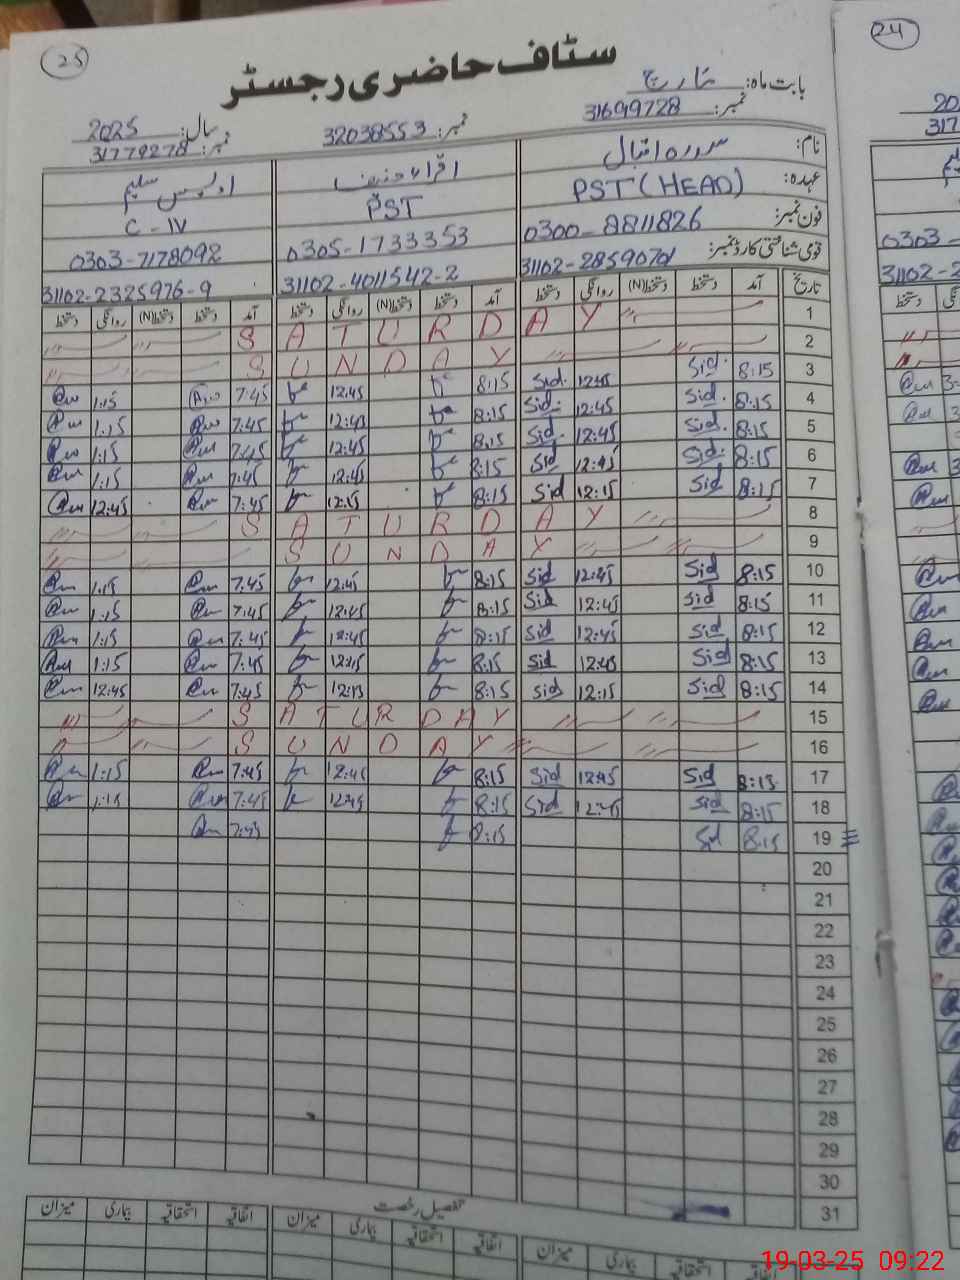 25
24
سٹاف حاضری رجسٹر
بابت ماہ: مارچ
سال: 2025
نمبر: 31699728 نمبر: 32038553 نمبر: 31779278
نام: سدرہ اقبال اقراء حنیف اویس سلیم
عہدہ: PST (HEAD) PST C-IV
فون نمبر: 0300-8811826 0305-1733353 0303-7178092
قومی شناختی کارڈ نمبر: 31102-2859070 31102-4011542-2 31102-2325976-9
تاریخ آمد دستخط دستخط(N) روانگی دستخط آمد دستخط دستخط(N) روانگی دستخط آمد دستخط دستخط(N) روانگی دستخط
1 SATURDAY
2 SUNDAY
3 8:15 Sid. 12:45 Sid. 8:15 12:45 7:45 1:15
4 8:15 Sid. 12:45 Sid. 8:15 12:45 7:45 1:15
5 8:15 Sid. 12:45 Sid. 8:15 12:45 7:45 1:15
6 8:15 Sid. 12:45 Sid 8:15 12:45 7:45 1:15
7 8:15 Sid 12:15 Sid 8:15 12:15 7:45 12:45
8 SATURDAY
9 SUNDAY
10 8:15 Sid 12:45 Sid 8:15 12:45 7:45 1:15
11 8:15 Sid 12:45 Sid 8:15 12:45 7:45 1:15
12 8:15 Sid 12:45 Sid 8:15 12:45 7:45 1:15
13 8:15 Sid 12:45 Sid 8:15 7:45 1:15
14 8:15 Sid 12:15 Sid 8:15 7:45 12:45
15 SATURDAY
16 SUNDAY
17 8:15 Sid 12:45 Sid 8:15 12:45 7:45 1:15
18 8:15 Sid 12:45 Sid 8:15 12:45 7:45 1:15
19 8:15 Sid 8:15 7:45
20
21
22
23
24
25
26
27
28
29
30
31
تفصیل رخصت
اتفاقیہ استحقاقیہ بیماری میزان اتفاقیہ استحقاقیہ بیماری میزان اتفاقیہ استحقاقیہ بیماری میزان
19-03-25 09:22